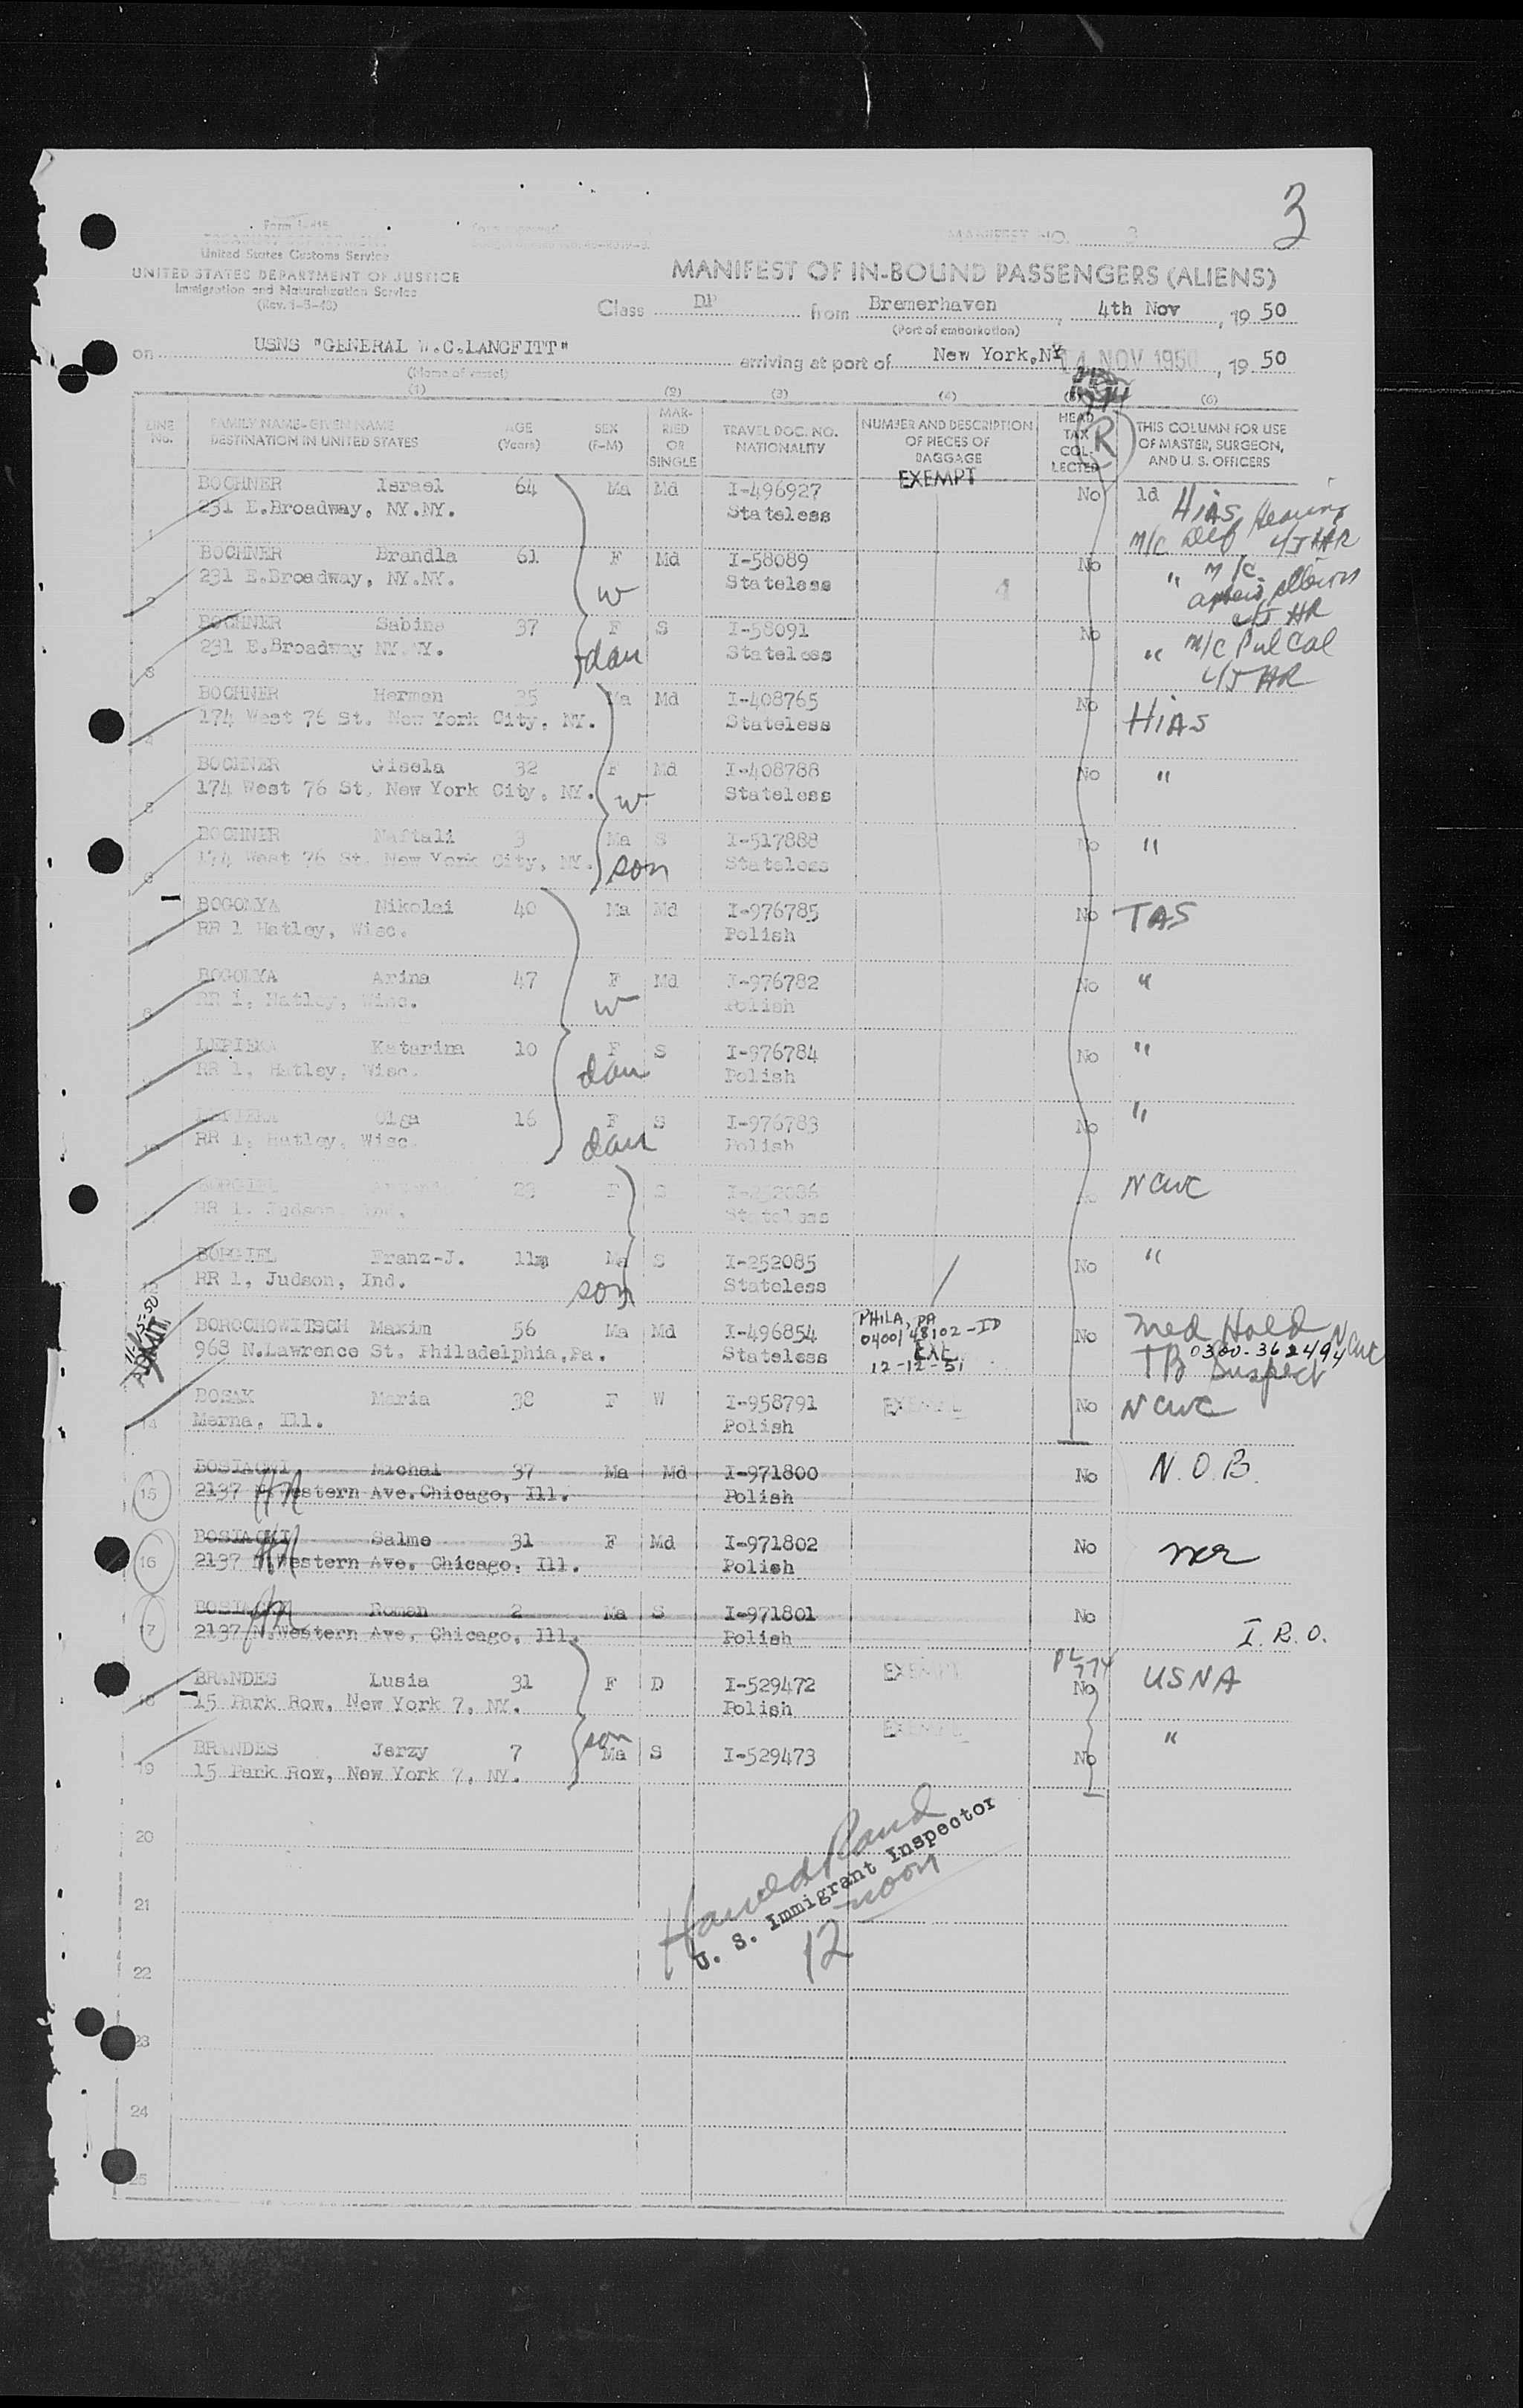 3
Form I-415
United States Customs Service
UNITED STATES DEPARTMENT OF JUSTICE
Immigration and Naturalization Service
(Rev. 1-5-48)
MANIFEST NO. 3
MANIFEST OF IN-BOUND PASSENGERS (ALIENS)
Class DP from Bremerhaven, 4th Nov, 19 50
(Port of embarkation)
on USNS "GENERAL W.C.LANGFITT" arriving at port of New York,NY 14 NOV 1950, 19 50
(Name of vessel)
(1) (2) (3) (4) (6)
LINE No. FAMILY NAME-GIVEN NAME DESTINATION IN UNITED STATES AGE (Years) SEX (F-M) MAR-RIED OR SINGLE TRAVEL DOC. NO. NATIONALITY NUMBER AND DESCRIPTION OF PIECES OF BAGGAGE HEAD TAX COL-LECTED (R) THIS COLUMN FOR USE OF MASTER, SURGEON, AND U. S. OFFICERS
EXEMPT
BOCHNER Israel 64 Ma Md I-496927 No ld HIAS
1 231 E.Broadway, NY.NY. Stateless M/C Def Hearing
BOCHNER Brandla 61 F Md I-58089 No " M/C
2 231 E.Broadway, NY.NY. w Stateless
BOCHNER Sabina 37 F S I-58091 No " M/C Pul Cal
3 231 E.Broadway NY.NY. dau Stateless
BOCHNER Herman 35 Ma Md I-408765 No HIAS
4 174 West 76 St. New York City, NY. Stateless
BOCHNER Gisela 32 F Md I-408788 No "
5 174 West 76 St, New York City, NY. w Stateless
BOCHNER Naftali 3 Ma S I-517888 No "
6 174 West 76 St. New York City, NY. son Stateless
BOGOMYA Nikolai 40 Ma Md I-976785 No TAS
RR 1 Hatley, Wisc. Polish
BOGOMYA Arina 47 F Md I-976782 No "
8 RR 1, Hatley, Wisc. w Polish
Katarina 10 F S I-976784 No "
RR 1, Hatley, Wisc. dau Polish
Olga 16 F S I-976783 No "
10 RR 1, Hatley, Wisc. dau Polish
BORGIEL 23 F S NCWC
RR 1. Judson, Ind. Stateless
BORGIEL Franz-J. 11m Ma S I-252085 No "
12 RR 1, Judson, Ind. son Stateless
ADMIT
BOROCHOWITSCH Maxim 56 Ma Md I-496854 PHILA, PA No Med Hold NCWC
968 N.Lawrence St. Philadelphia,Pa. Stateless 0400/48102-ID 0300-362494
EXC. 12-12-51 TB Suspect
BOSAK Maria 38 F W I-958791 EXEMPT No NCWC
14 Merna, Ill. Polish
BOSIACKI Michal 37 Ma Md I-971800 No N.O.B.
15 2137 N.Western Ave.Chicago, Ill. Polish
BOSIACKI Salme 31 F Md I-971802 No
16 2137 N.Western Ave. Chicago, Ill. Polish
Roman 2 Ma S I-971801 No
17 2137 N.Western Ave. Chicago, Ill. Polish I.R.O.
PL 774
BRANDES Lusia 31 F D I-529472 EXEMPT No USNA
18 15 Park Row, New York 7, NY. Polish
BRANDES Jerzy 7 son Ma S I-529473 EXEMPT No "
19 15 Park Row, New York 7, NY.
20
Harold Rand
U. S. Immigrant Inspector
12 noon
21
22
23
24
25